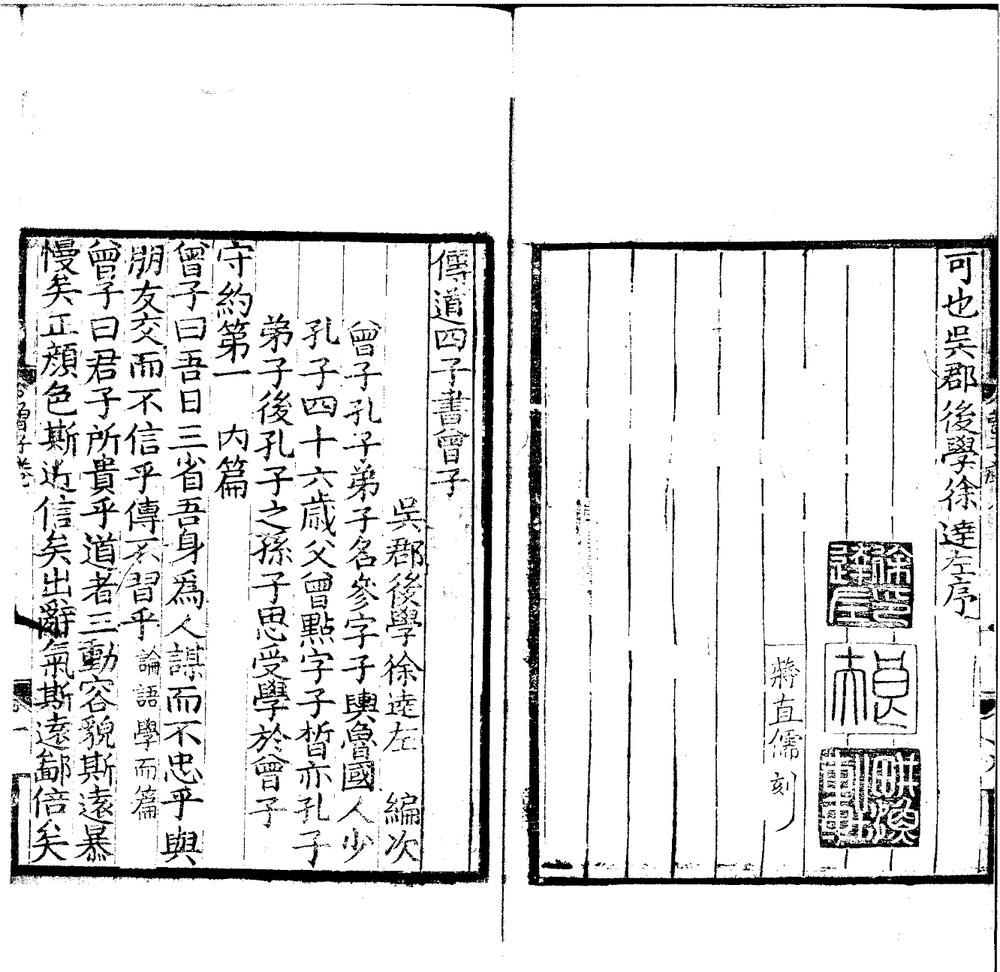 可也吳郡後學徐達左序
徐達左印
蔣直儒刻
傳道四子書曾子
吳郡後學徐達左 編次
曾子孔子弟子名參字子輿魯國人少
孔子四十六歲父曾點字子晳亦孔子
弟子後孔子之孫子思受學於曾子
守約第一 內篇
曾子曰吾日三省吾身爲人謀而不忠乎與
朋友交而不信乎傳不習乎 論語學而篇
曾子曰君子所貴乎道者三動容貌斯遠暴
慢矣正顏色斯近信矣出辭氣斯遠鄙倍矣
曾子卷一